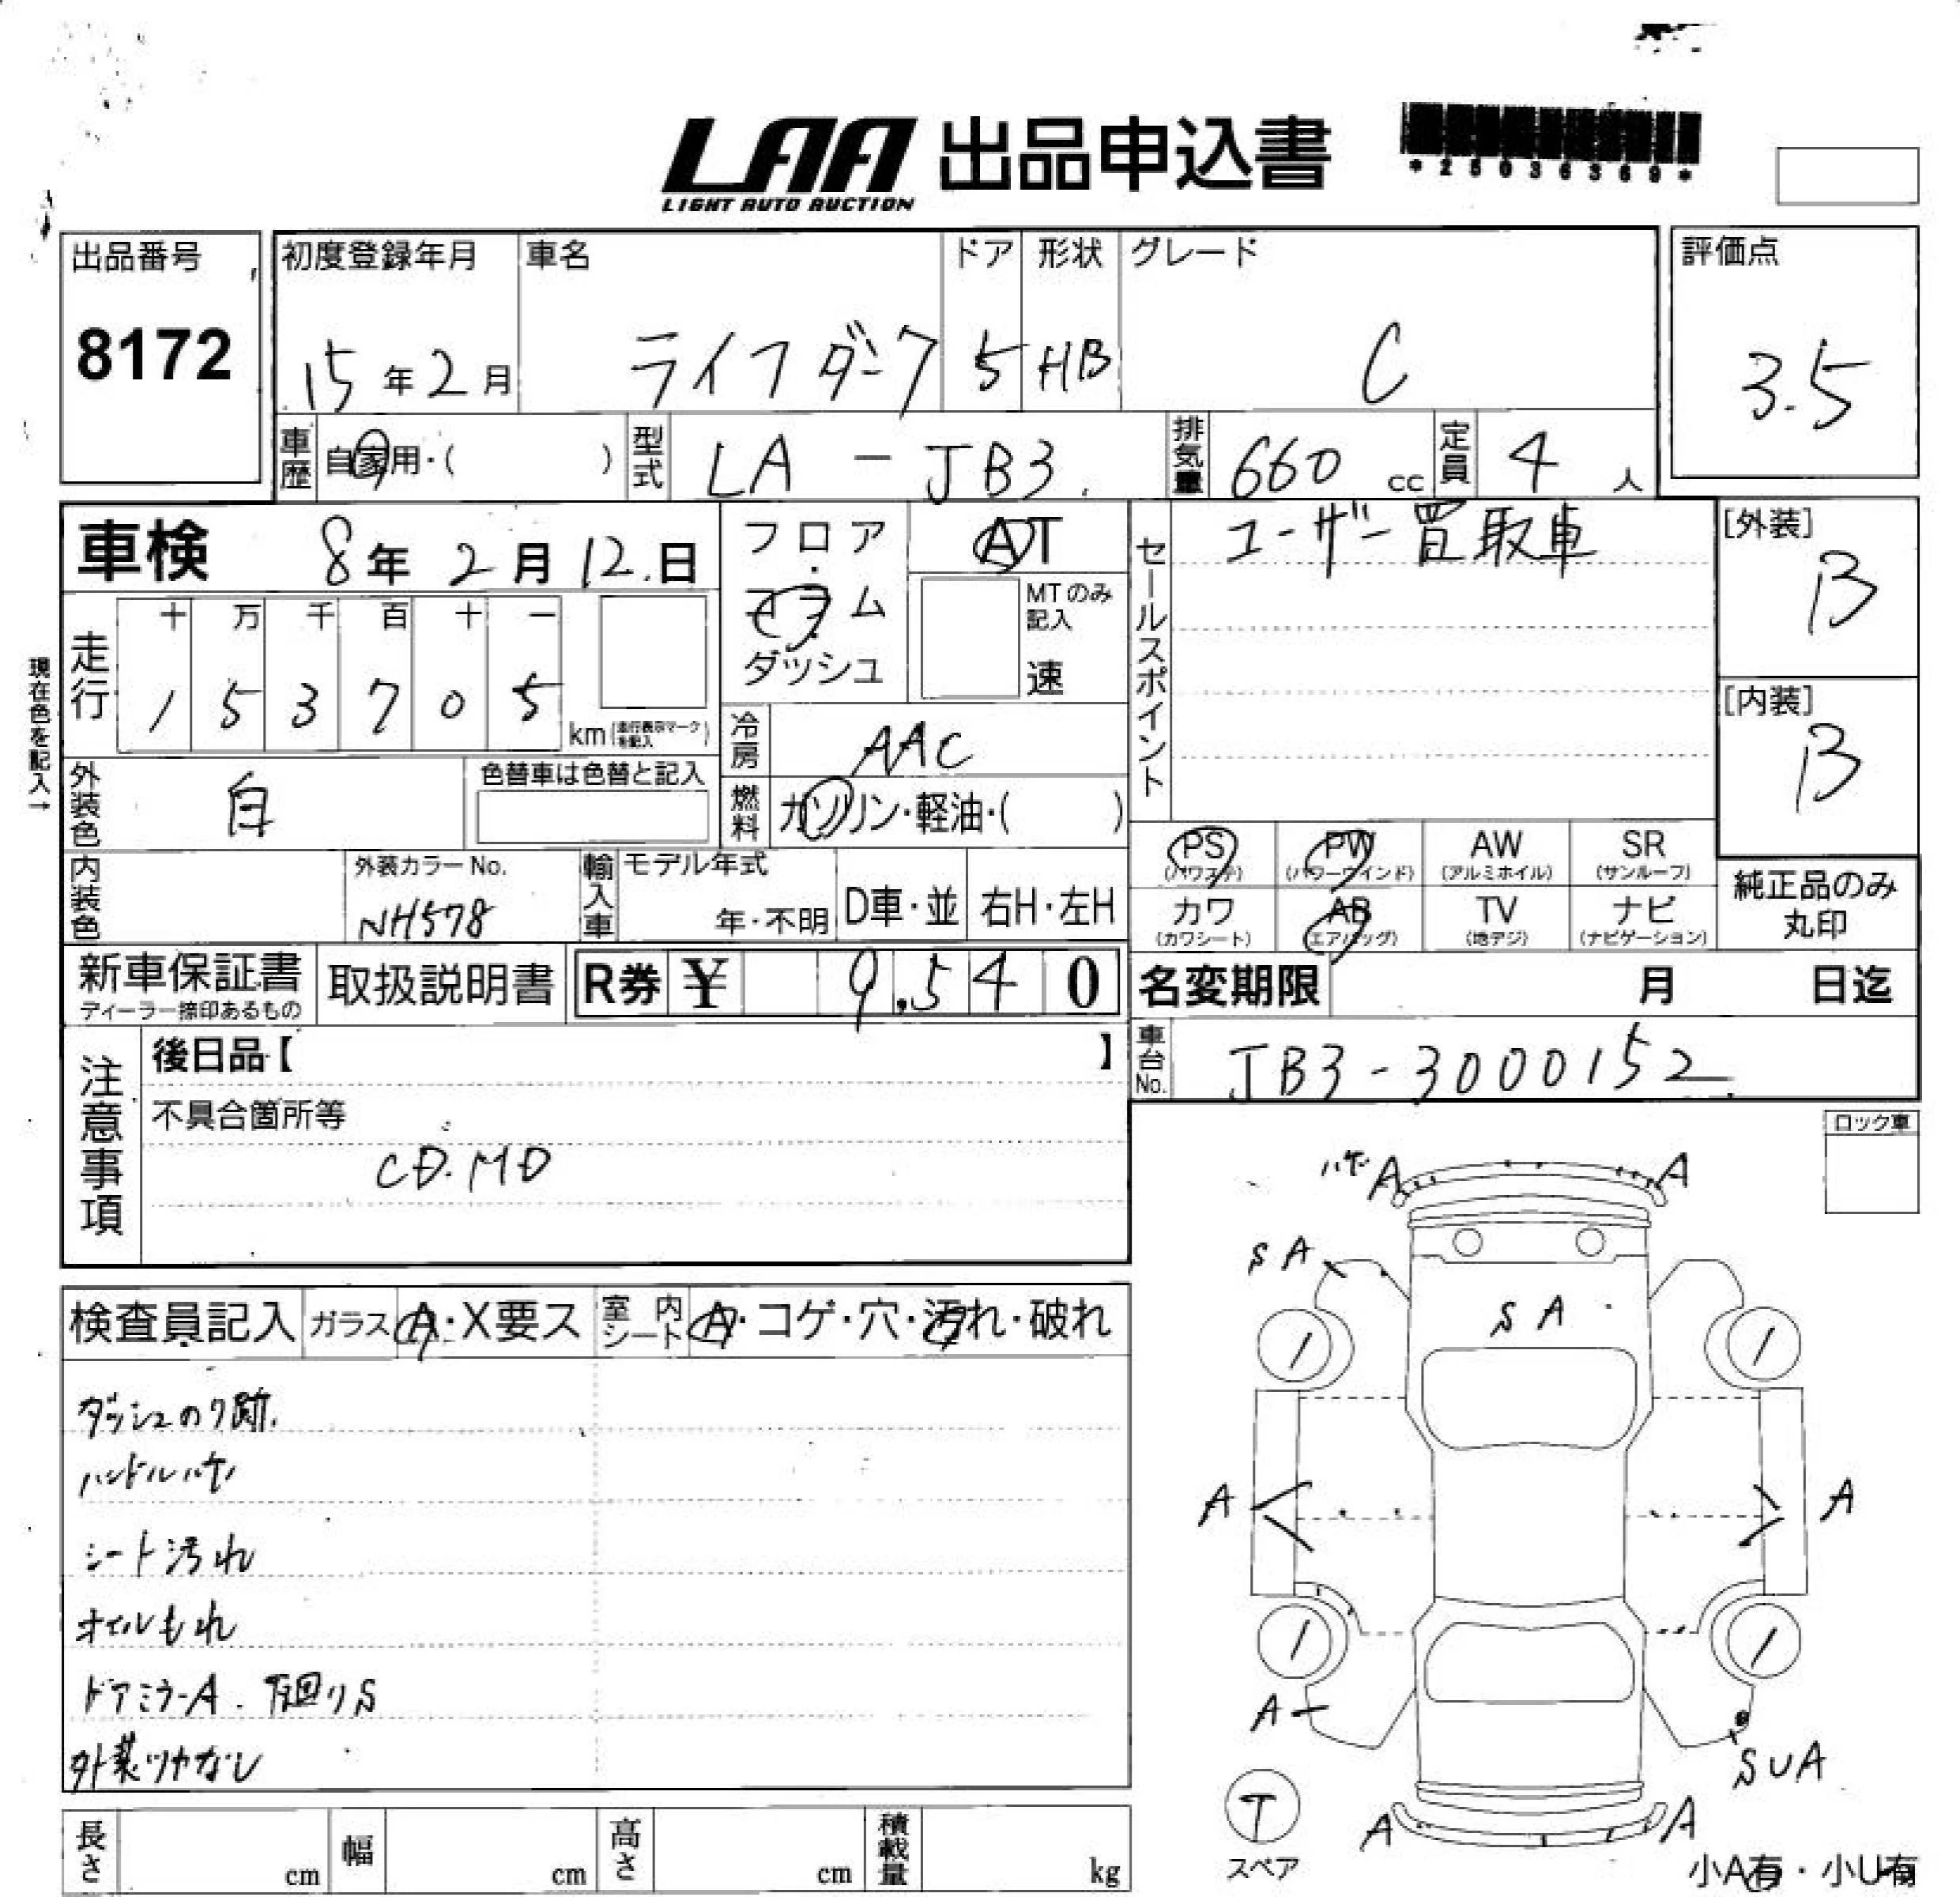 LAA 出品申込書
LIGHT AUTO AUCTION
*25036369*
出品番号
8172
初度登録年月
15年2月
車名
ライフダンク
ドア
5
形状
HB
グレード
C
評価点
3.5
車歴 自家用・( )
型式 LA - JB3
排気量 660 cc
定員 4 人
車検 8年 2月 12日
フロア・コラム・ダッシュ
AT
MTのみ記入
速
セールスポイント
ユーザー買取車
[外装]
B
[内装]
B
現在色を記入→
走行
十 万 千 百 十 一
1 5 3 7 0 5
km (走行表示マークを記入)
冷房 AAC
燃料 ガソリン・軽油・( )
外装色 白
色替車は色替と記入
内装色
外装カラーNo.
NH578
輸入車 モデル年式
年・不明
D車・並
右H・左H
PS (パワステ)
PW (パワーウインド)
AW (アルミホイル)
SR (サンルーフ)
カワ (カワシート)
AB (エアバッグ)
TV (地デジ)
ナビ (ナビゲーション)
純正品のみ
丸印
新車保証書
ディーラー捺印あるもの
取扱説明書
R券 ¥ 9,540
名変期限 月 日迄
車台No. JB3-3000152
注意事項
後日品【 】
不具合箇所等
CD.MD
ロック車
検査員記入
ガラス A・X要ス
室内シート A・コゲ・穴・汚れ・破れ
ダッシュのり跡.
ハンドルハゲ
シート汚れ
オイルもれ
ドアミラーA. 下回りS
外装ツヤなし
ハゲ A
A
SA
SA
A
A
A
SUA
A
A
T
スペア
小A有・小U有
長さ cm
幅 cm
高さ cm
積載量 kg